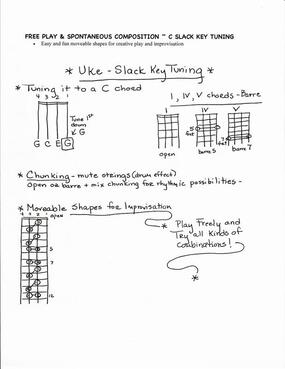 FREE PLAY & SPONTANEOUS COMPOSITION ~ C SLACK KEY TUNING
• Easy and fun moveable shapes for creative play and improvisation
* Uke - Slack Key Tuning *
* Tuning it to a C chord
4 3 2 1
Tune 1st
down
to G
G C E G
I, IV, V chords - Barre
I IV V
5
fret
7
fret
open barre 5 barre 7
* Chunking - mute strings (drum effect)
Open or barre + mix chunking for rhythmic possibilities -
* Moveable Shapes for Improvisation
4 3 2 1 open
5
7
12
* Play Freely and
Try all Kinds of
Combinations!
*